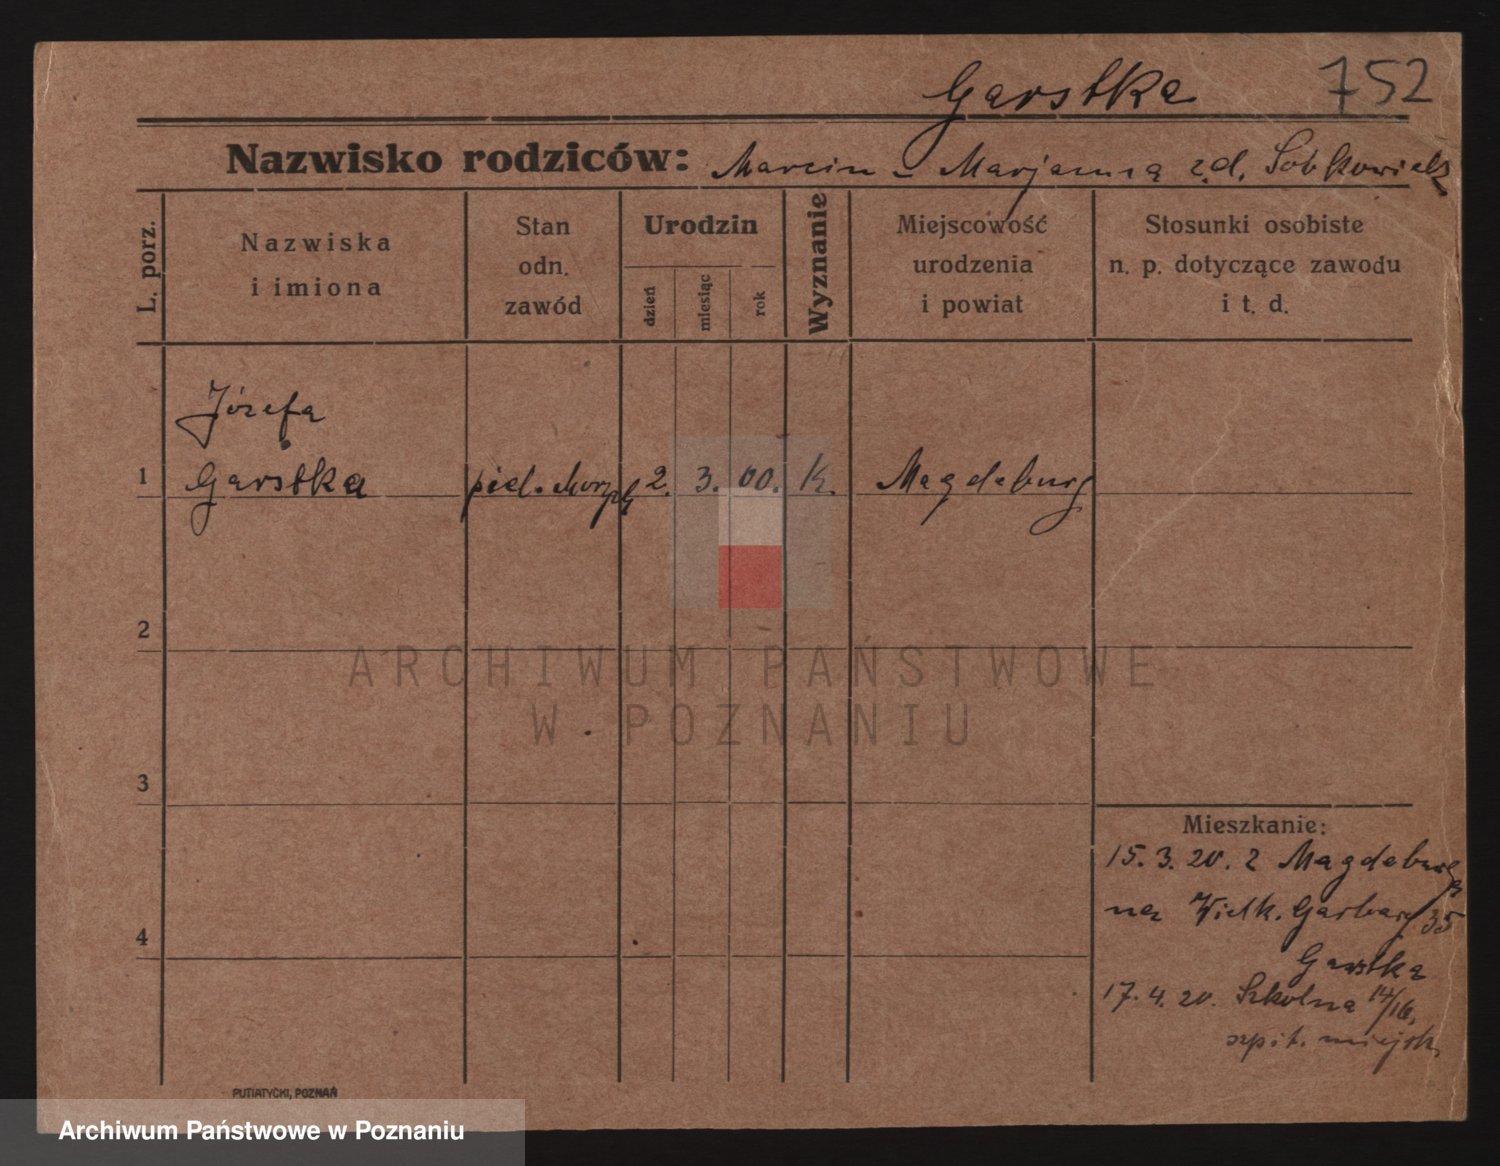 Garstka 752
Nazwisko rodziców: Marcin - Marjanna z.d. Sobkowiak
L. porz.
Nazwiska
i imiona
Stan
odn.
zawód
Urodzin
dzień
miesiąc
rok
Wyznanie
Miejscowość
urodzenia
i powiat
Stosunki osobiste
n. p. dotyczące zawodu
i t. d.
Józefa
1 Garstka piel. 2. 3. 00. K. Magdeburg
2
ARCHIWUM PAŃSTWOWE
W POZNANIU
3
Mieszkanie:
15. 3. 20. z Magdeburga
na Wielk. Garbary 35
4
Garstka
17. 4. 20. Szkolna 14/16,
szpit. miejsk.
PUTIATYCKI, POZNAŃ
Archiwum Państwowe w Poznaniu